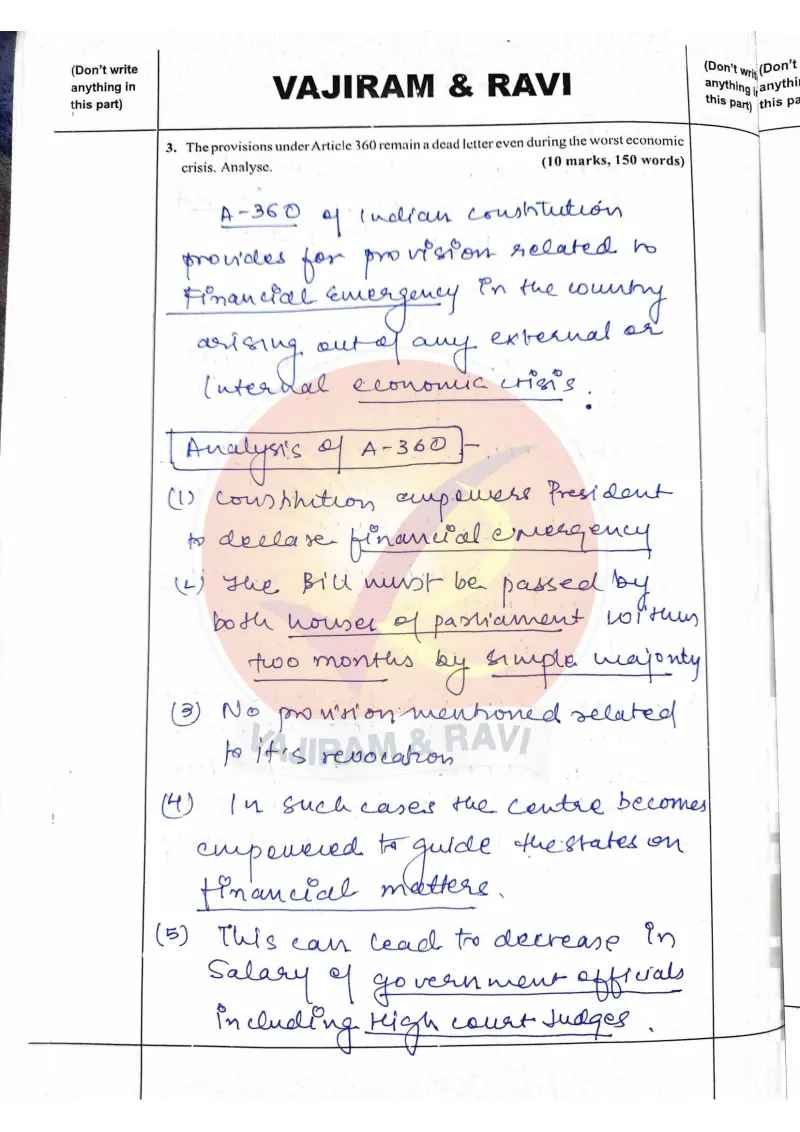 (Don't write
anything in
this part)
VAJIRAM & RAVI
(Don't writ
anything i
this part)
(Don't
anythi
this pa
3. The provisions under Article 360 remain a dead letter even during the worst economic
crisis. Analyse. (10 marks, 150 words)
A-360 of Indian constitution
provides for provision related to
Financial Emergency in the country
arising out of any external or
Internal economic crisis.
Analysis of A-360 -
(1) Constitution empowers President
to declare financial emergency
(2) The Bill must be passed by
both houses of parliament within
two months by simple majority
(3) No provision mentioned related
to it's revocation
VAJIRAM & RAVI
(4) In such cases the Centre becomes
empowered to guide the states on
financial matters.
(5) This can lead to decrease in
Salary of government officials
including High court Judges.